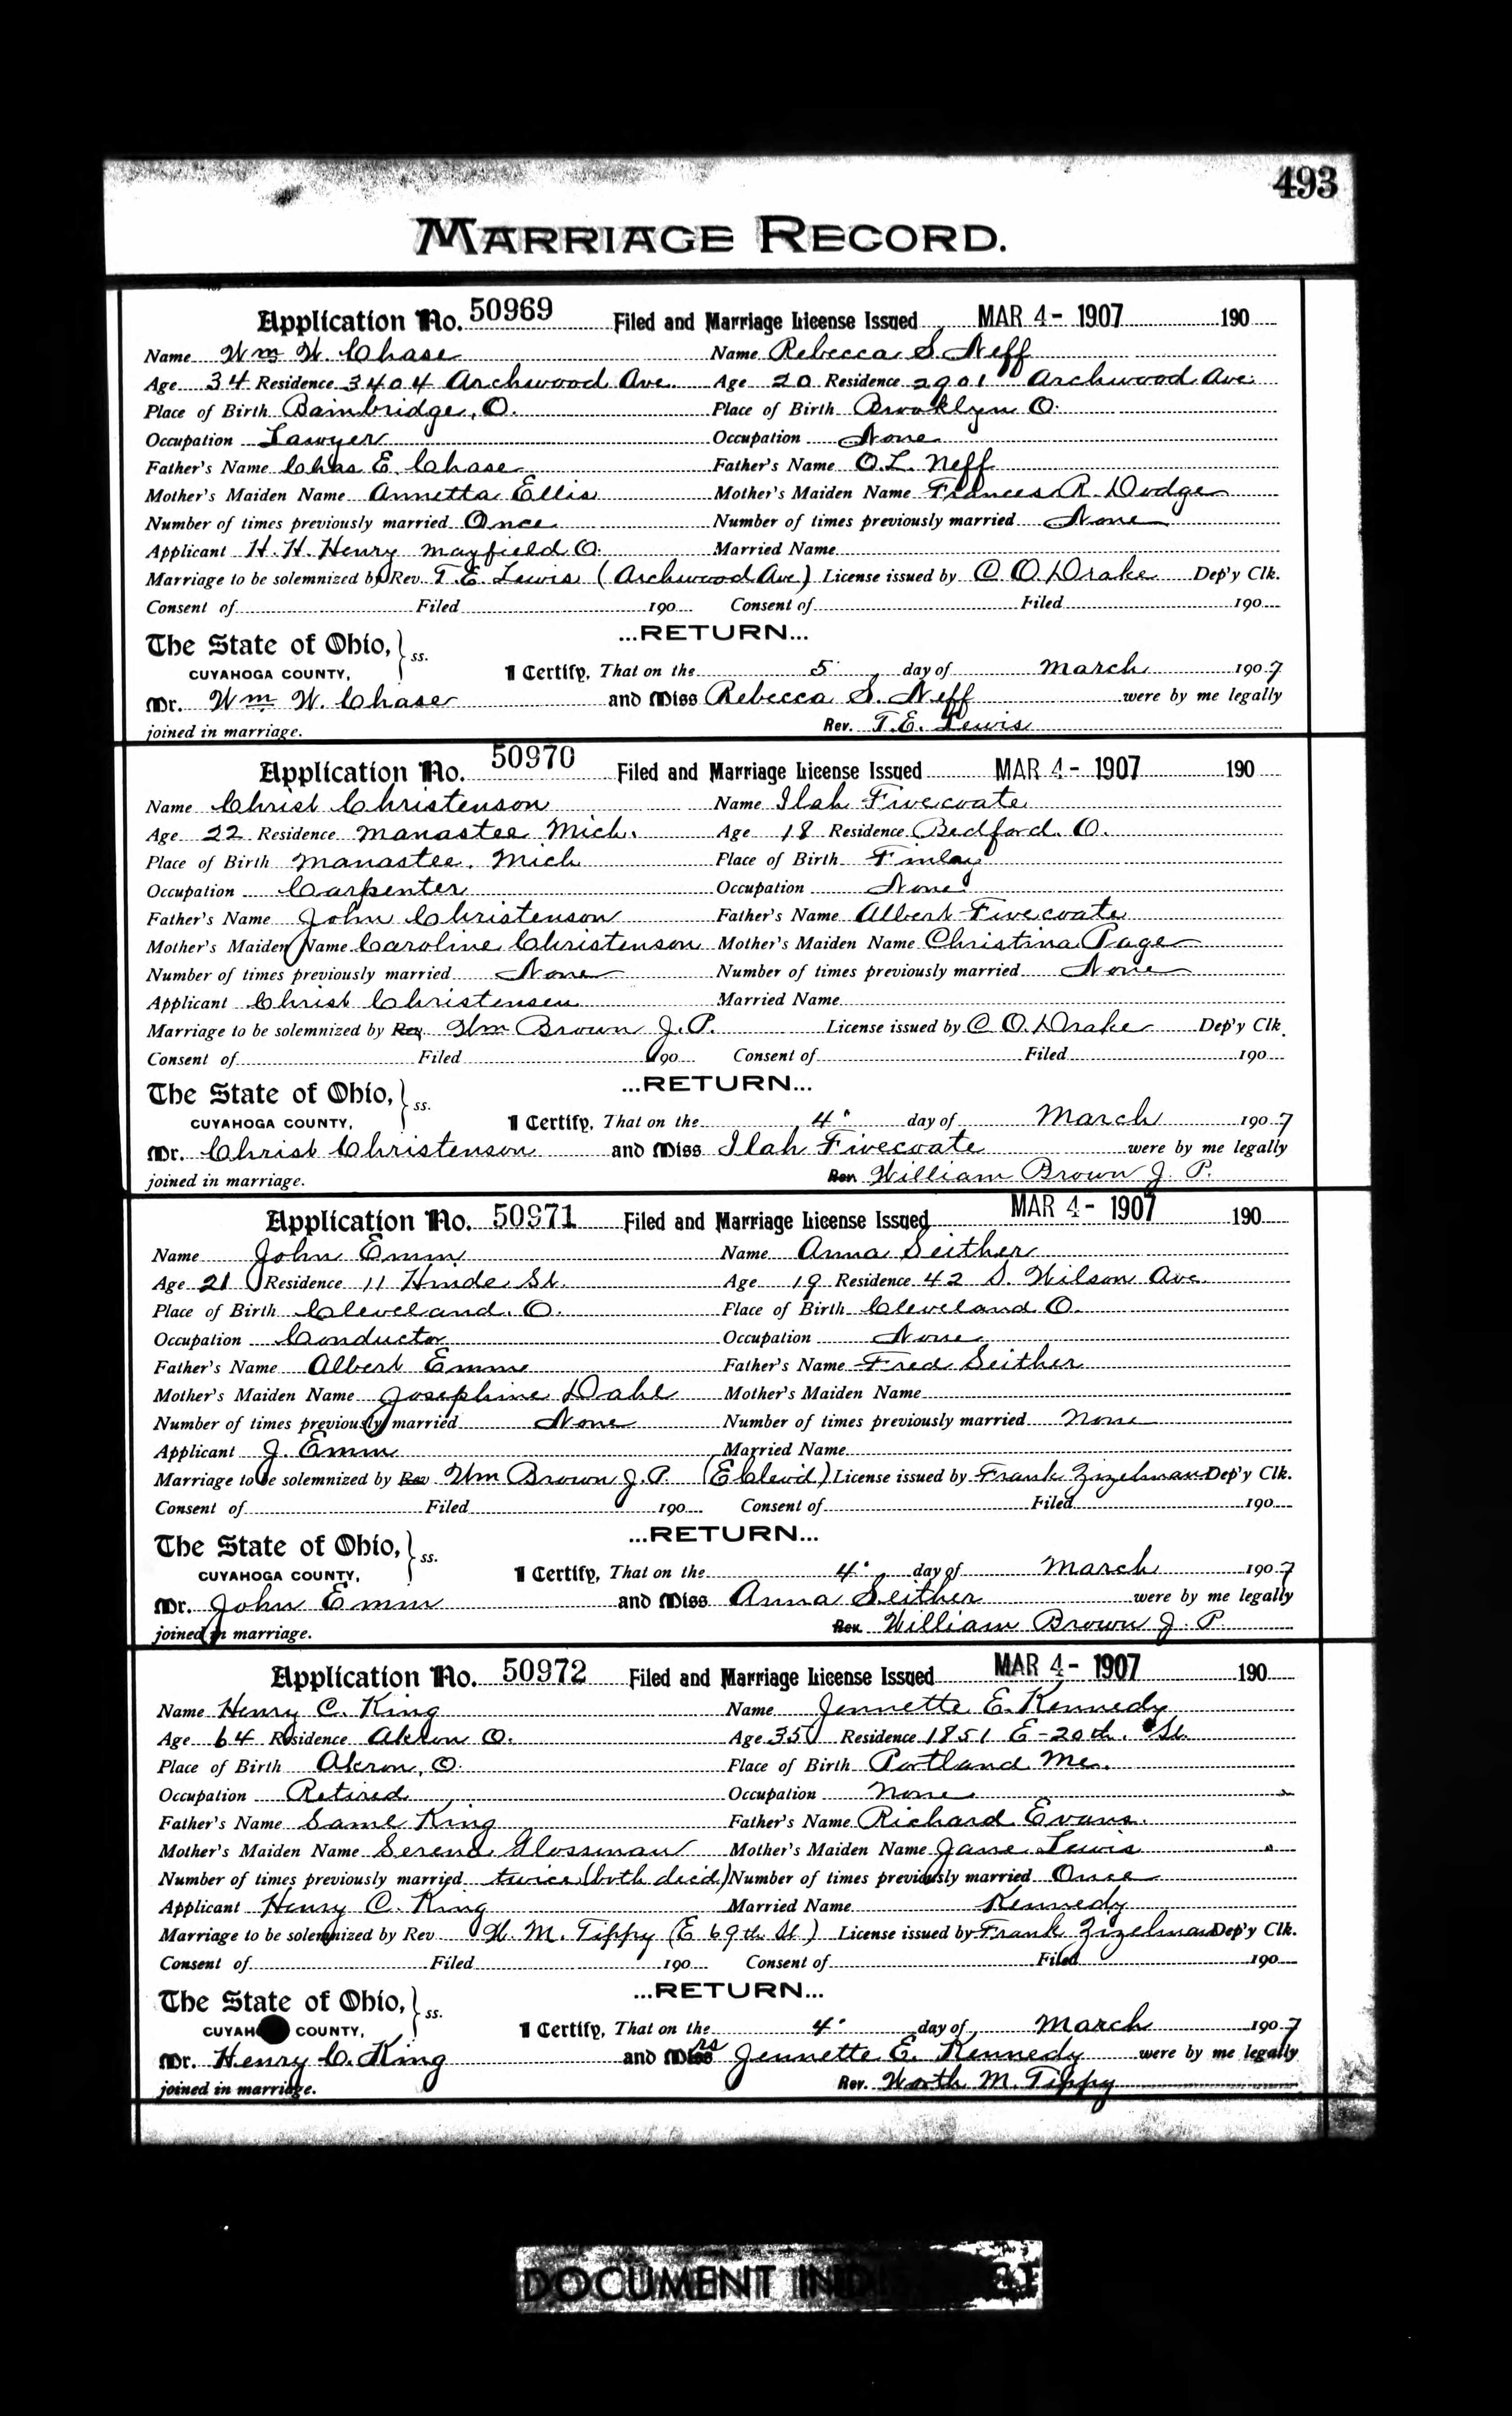 493
MARRIAGE RECORD.
Application No. 50969 Filed and Marriage License Issued MAR 4- 1907 190
Name Wm W. Chase Name Rebecca S. Neff
Age 34 Residence 3404 Archwood Ave. Age 20 Residence 2901 Archwood Ave.
Place of Birth Bainbridge, O. Place of Birth Brooklyn O.
Occupation Lawyer Occupation None
Father's Name Chas E. Chase Father's Name O.L. Neff
Mother's Maiden Name Annetta Ellis Mother's Maiden Name Frances R. Dodge
Number of times previously married Once Number of times previously married None
Applicant H. H. Henry Mayfield O. Married Name
Marriage to be solemnized by Rev. T. E. Lewis (Archwood Ave) License issued by C. O. Drake Dep'y Clk.
Consent of Filed 190 Consent of Filed 190
...RETURN...
The State of Ohio, } ss.
CUYAHOGA COUNTY, I Certify, That on the 5" day of March 1907
Mr. Wm W. Chase and Miss Rebecca S. Neff were by me legally
joined in marriage. Rev. T. E. Lewis
Application No. 50970 Filed and Marriage License Issued MAR 4- 1907 190
Name Christ Christenson Name Ilah Fivecoate
Age 22 Residence Manastee Mich. Age 18 Residence Bedford. O.
Place of Birth Manastee. Mich Place of Birth Finlay
Occupation Carpenter Occupation None
Father's Name John Christenson Father's Name Albert Fivecoate
Mother's Maiden Name Caroline Christenson Mother's Maiden Name Christina Page
Number of times previously married None Number of times previously married None
Applicant Christ Christensen Married Name
Marriage to be solemnized by Rev. Wm Brown J. P. License issued by C. O. Drake Dep'y Clk.
Consent of Filed 190 Consent of Filed 190
...RETURN...
The State of Ohio, } ss.
CUYAHOGA COUNTY, I Certify, That on the 4" day of March 1907
Mr. Christ Christenson and Miss Ilah Fivecoate were by me legally
joined in marriage. Rev. William Brown J. P.
Application No. 50971 Filed and Marriage License Issued MAR 4- 1907 190
Name John Emm Name Anna Seither
Age 21 Residence 11 Hinde St. Age 19 Residence 42 S. Wilson Ave.
Place of Birth Cleveland. O. Place of Birth Cleveland O.
Occupation Conductor Occupation None
Father's Name Albert Emme Father's Name Fred Seither
Mother's Maiden Name Josephine Dahl Mother's Maiden Name
Number of times previously married None Number of times previously married None
Applicant J. Emm Married Name
Marriage to be solemnized by Rev Wm Brown J. P. (E Clev'd) License issued by Frank Zizelman Dep'y Clk.
Consent of Filed 190 Consent of Filed 190
...RETURN...
The State of Ohio, } ss.
CUYAHOGA COUNTY, I Certify, That on the 4" day of March 1907
Mr. John Emm and Miss Anna Seither were by me legally
joined in marriage. Rev. William Brown J. P.
Application No. 50972 Filed and Marriage License Issued MAR 4- 1907 190
Name Henry C. King Name Jennette E. Kennedy
Age 64 Residence Akron O. Age 35 Residence 1851 E-20th. St.
Place of Birth Akron, O. Place of Birth Portland Me.
Occupation Retired Occupation None
Father's Name Saml King Father's Name Richard Evans.
Mother's Maiden Name Serena Glossman Mother's Maiden Name Jane Lewis
Number of times previously married twice (both died) Number of times previously married Once
Applicant Henry C. King Married Name Kennedy
Marriage to be solemnized by Rev W. M. Tippy (E 69th St) License issued by Frank Zizelman Dep'y Clk.
Consent of Filed 190 Consent of Filed 190
...RETURN...
The State of Ohio, } ss.
CUYAH COUNTY, I Certify, That on the 4" day of March 1907
Mr. Henry C. King and Mrs Jennette E. Kennedy were by me legally
joined in marriage. Rev. Worth M. Tippy
DOCUMENT